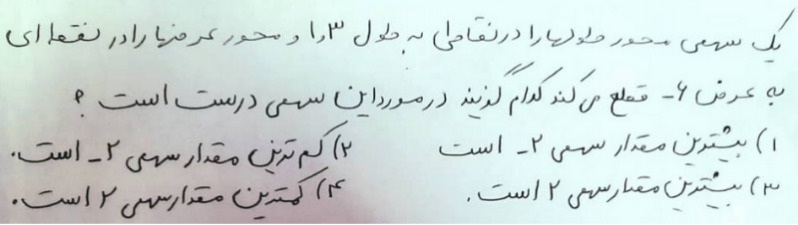 یک سهمی محور طولها را در نقاطی به طول ۳ و ۱ و محور عرضها را در نقطه ای
به عرض ۶- قطع می کند کدام گزینه در مورد این سهمی درست است ؟
۱) بیشترین مقدار سهمی ۲- است ۲) کم ترین مقدار سهمی ۲- است.
۳) بیشترین مقدار سهمی ۲ است. ۴) کمترین مقدار سهمی ۲ است.